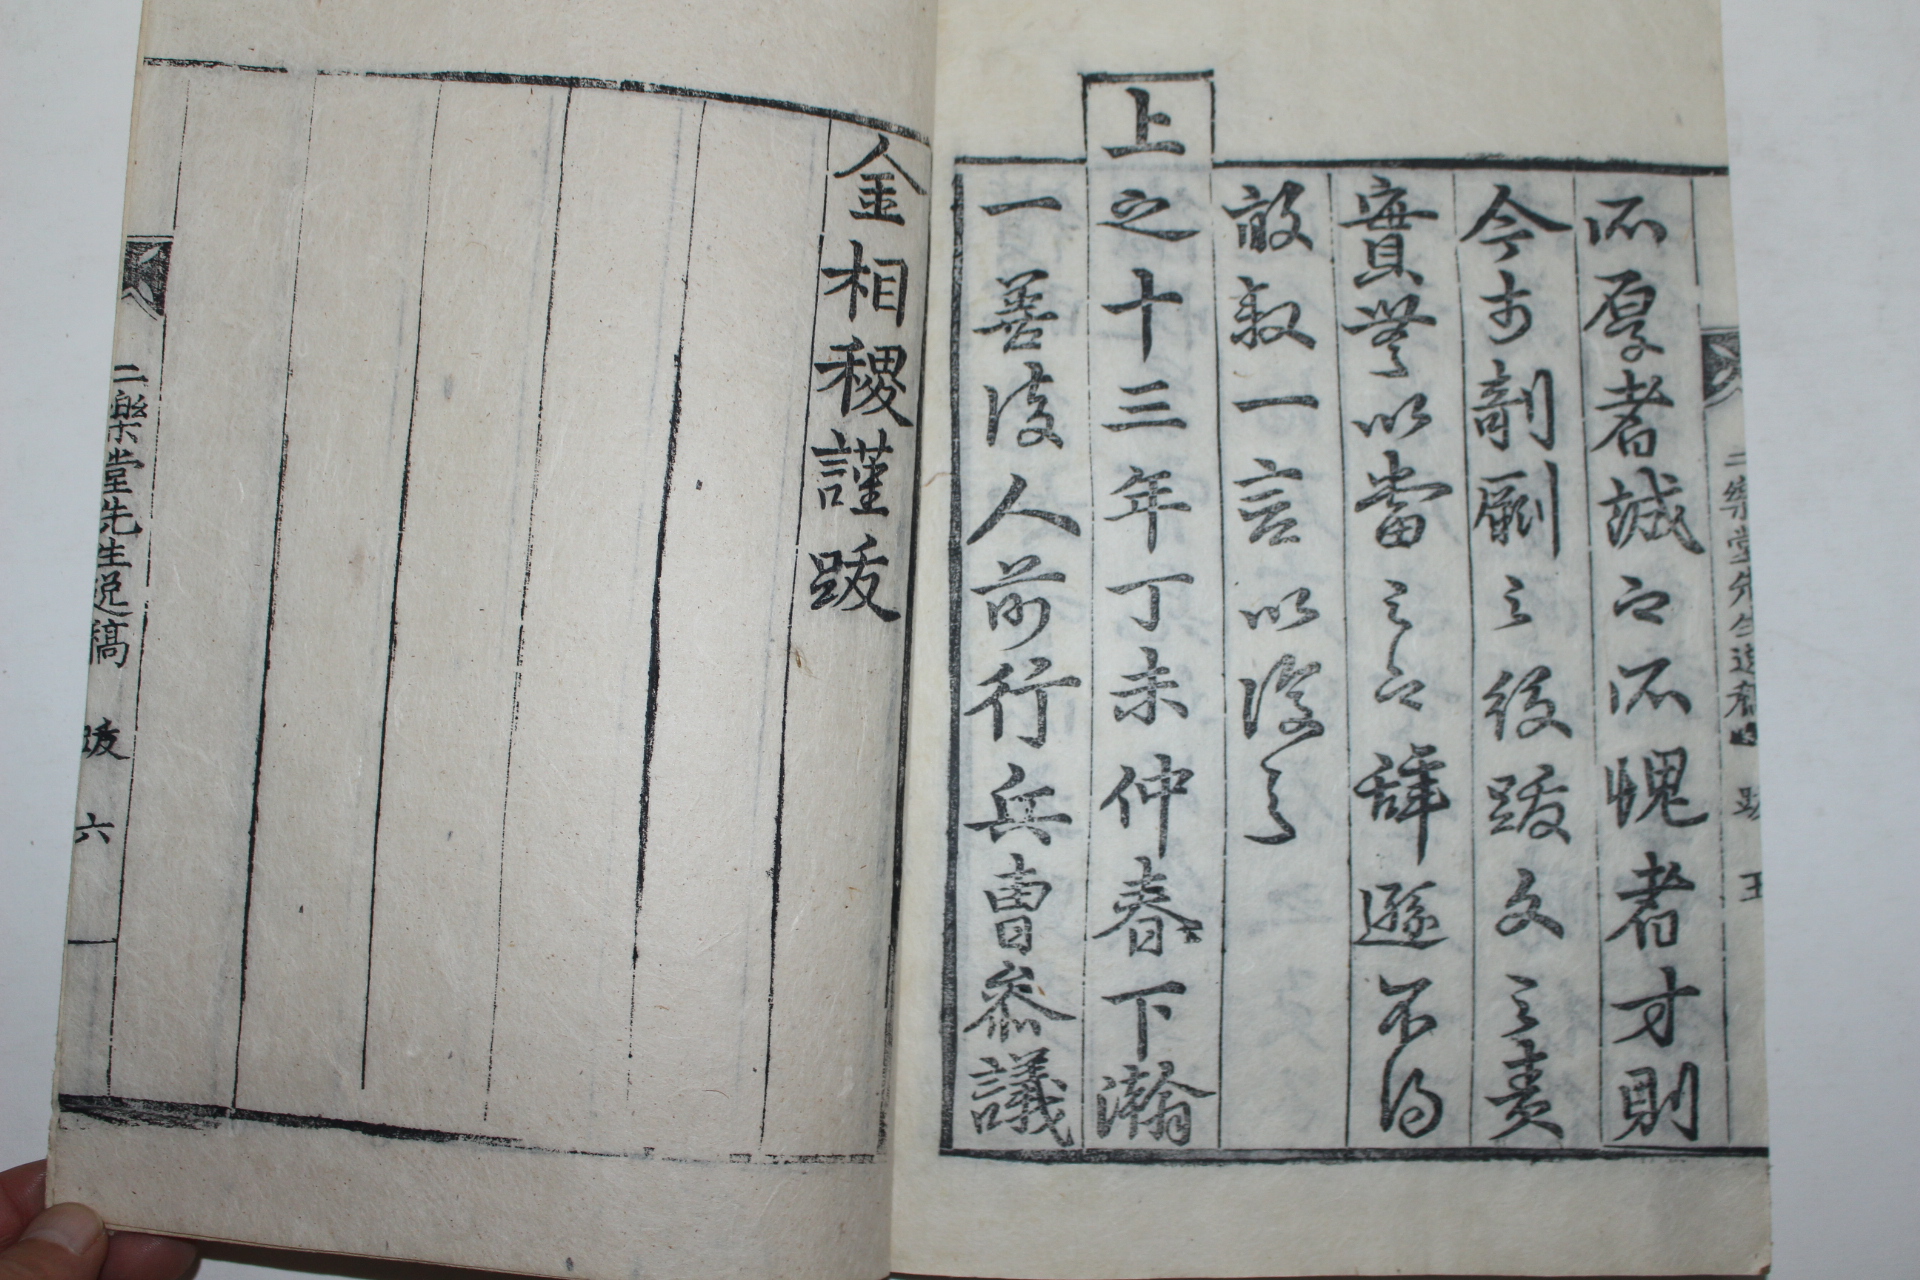 所厚者誠也所愧者才則
今於剞劂之役跋文之責
實無以當之也辭遜不得
敢敍一言以復之
上之十三年丁未仲春下瀚
一善後人前行兵曹參議
金相稷謹跋
二樂堂先生逸稿 跋 五
二樂堂先生逸稿 跋 六